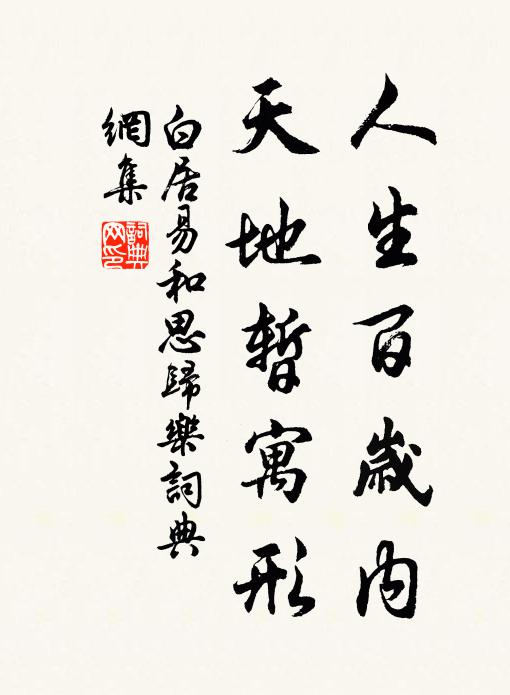 人生百歲內
天地暫寓形
白居易和思歸樂詞典
網集
詞典
网印